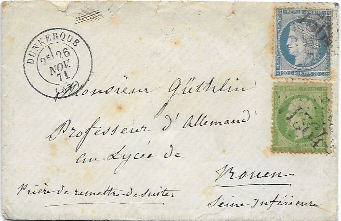 DUNKERQUE
2E 26
NOV
71
Monsieur Güthlin
Professeur d'Allemand
au Lycée de
Rouen
Prière de remettre de suite
Seine-Inférieure